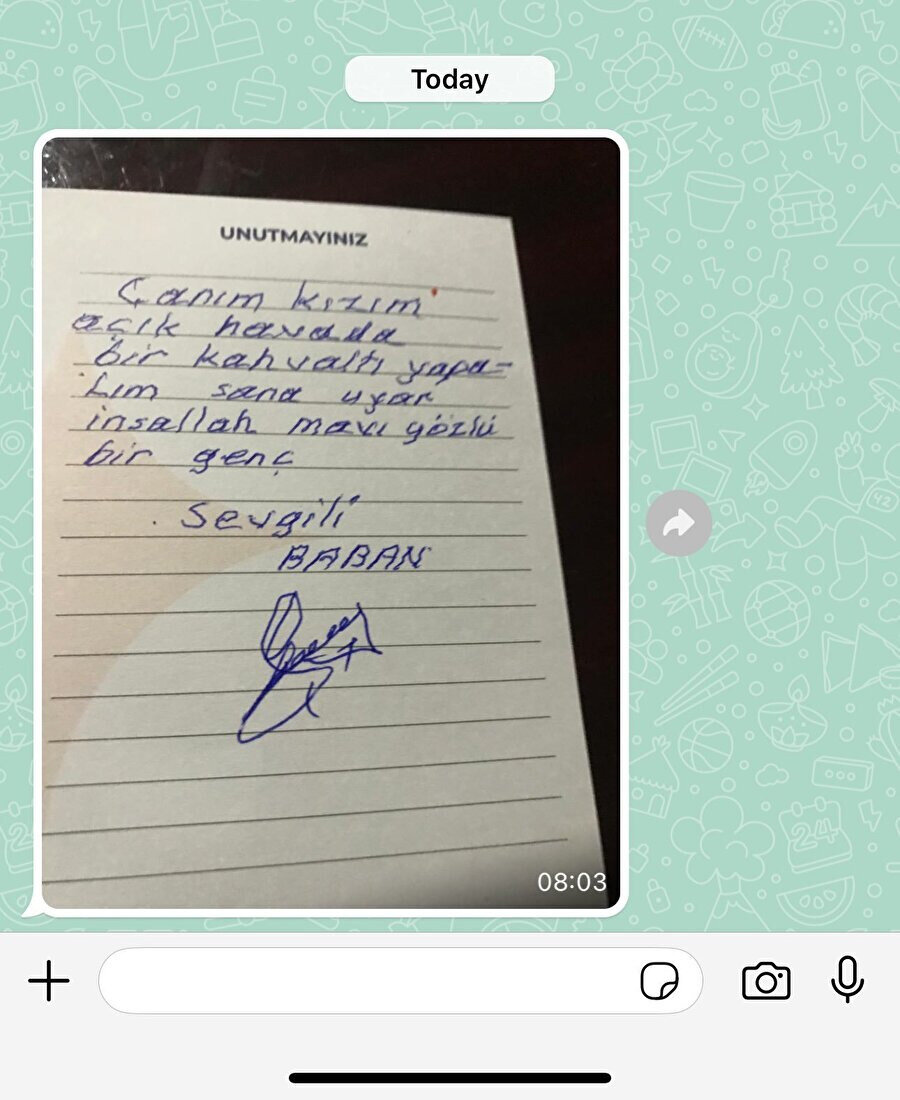 Today
UNUTMAYINIZ
Canım kızım
açık havada
bir kahvaltı yapa=
lım sana uyar
insallah mavi gözlü
bir genç
Sevgili
BABAN
08:03